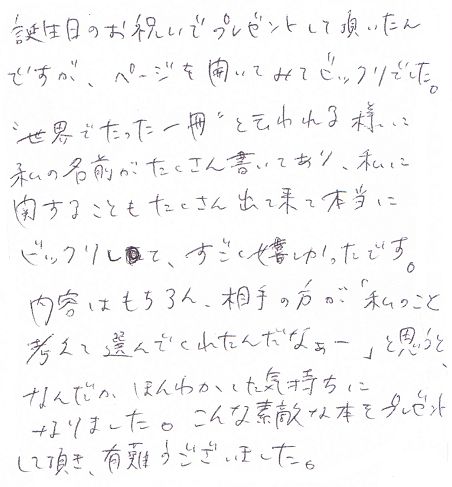 誕生日のお祝いでプレゼントして頂いたん
ですが、ページを開いてみてビックリでした。
"世界でたった一冊"と云われる様に
私の名前がたくさん書いてあり、私に
関することもたくさん出て来て本当に
ビックリして、すごく嬉しかったです。
内容はもちろん、相手の方が「私のこと
考えて選んでくれたんだなぁー」と思うと、
なんだか、ほんわかした気持ちに
なりました。こんな素敵な本をプレゼント
して頂き、有難うございました。